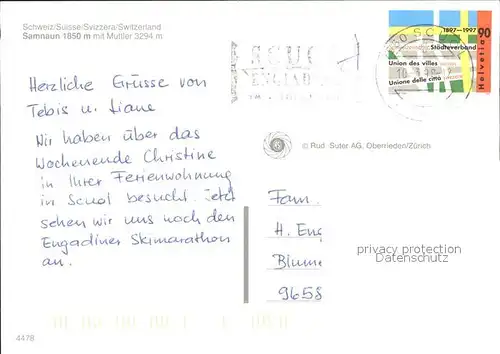 Schweiz/Suisse/Svizzera/Switzerland
Samnaun 1850 m mit Muttler 3294 m
1897-1997 90
Städteverband
Union des villes
Unione delle città
Helvetia
SCUOL
Herzliche Grüsse von
Tebis u. Liane
Wir haben über das
Wochenende Christine
in Ihrer Ferienwohnung
in Scuol besucht. Jetzt
sehen wir uns noch den
Engadiner Skimarathon
an.
© Rud. Suter AG, Oberrieden/Zürich
Fam.
H. Eng
Blume
9658
privacy protection
Datenschutz
4478